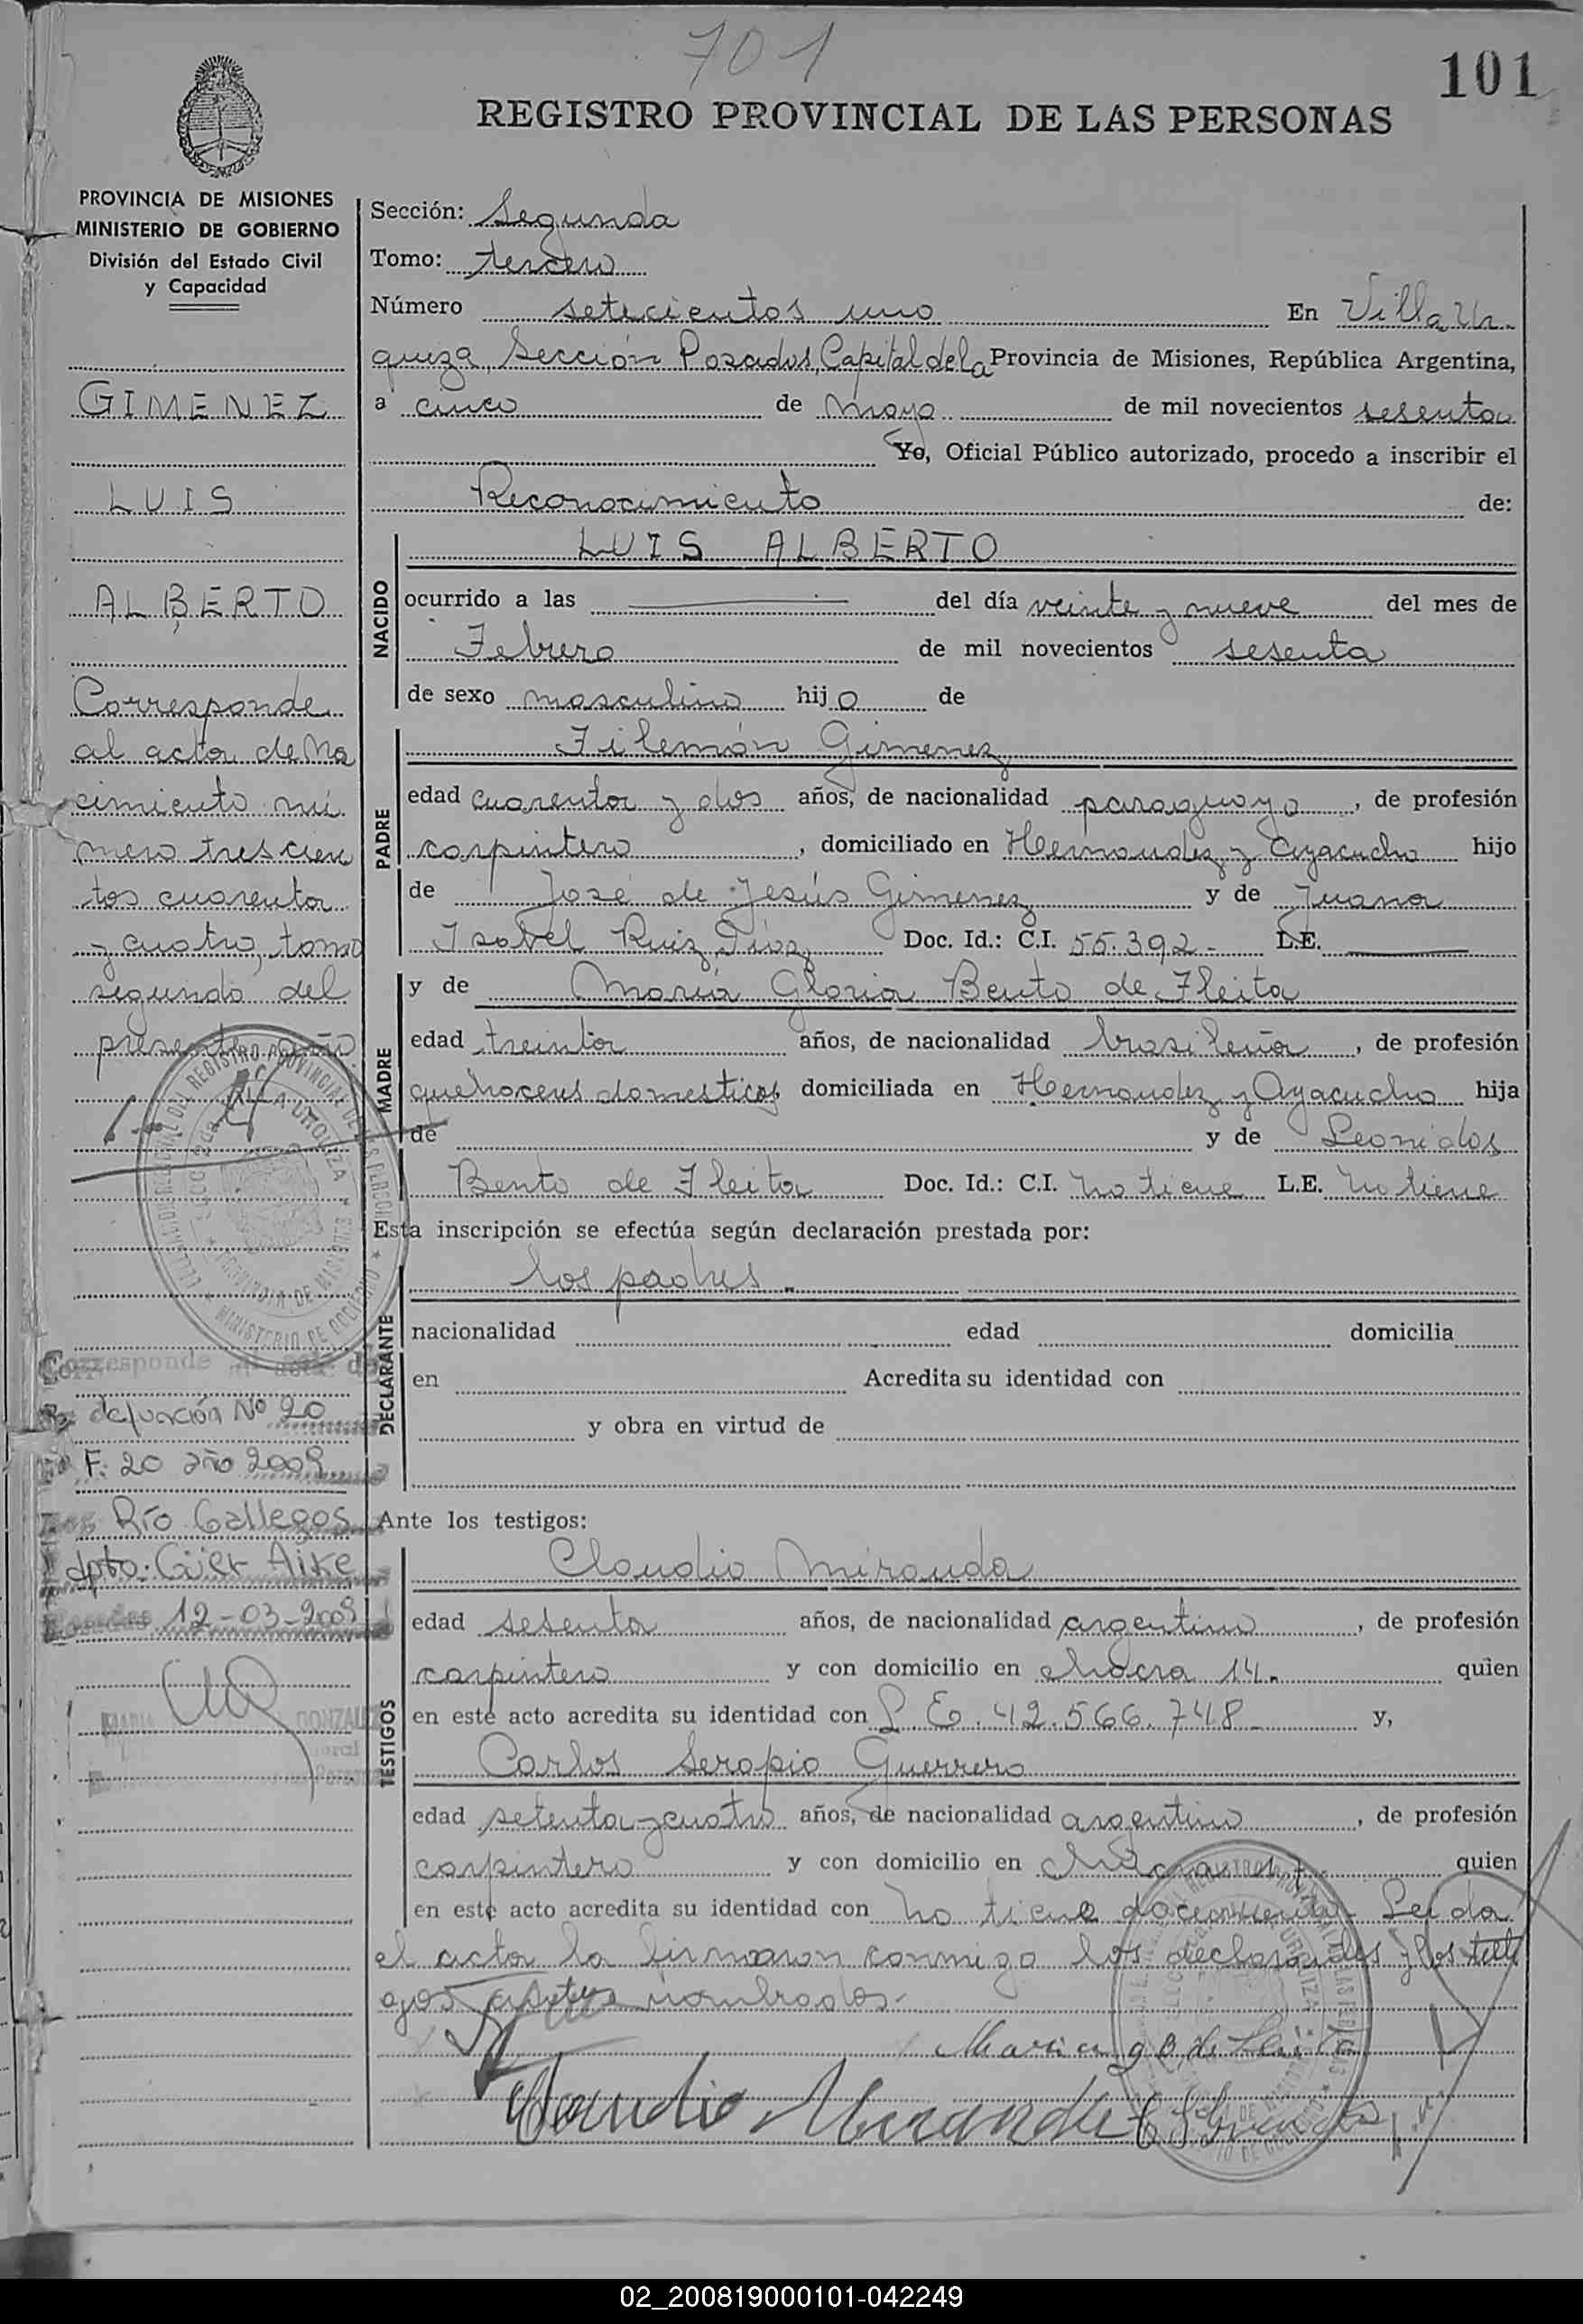 701
101
REGISTRO PROVINCIAL DE LAS PERSONAS
PROVINCIA DE MISIONES
MINISTERIO DE GOBIERNO
División del Estado Civil
y Capacidad
GIMENEZ
LUIS
ALBERTO
Corresponde
al acta de Na
cimiento nú
mero trescien
tos cuarenta
y cuatro, tomo
segundo del
presente año
Corresponde al acta de
defunción Nº 20
F: 20 año 2009
Río Gallegos
dpto. Güer Aike
Posadas 12-03-2009
Sección: Segunda
Tomo: tercero
Número setecientos uno En Villa Ur
quiza, Sección Posadas, Capital de la Provincia de Misiones, República Argentina,
a cinco de mayo de mil novecientos sesenta
Yo, Oficial Público autorizado, procedo a inscribir el
Reconocimiento de:
NACIDO
LUIS ALBERTO
ocurrido a las del día veinte y nueve del mes de
Febrero de mil novecientos sesenta
de sexo masculino hijo de
PADRE
Filemón Gimenez
edad cuarenta y dos años, de nacionalidad paraguayo, de profesión
carpintero, domiciliado en Hernandez y Ayacucho hijo
de José de Jesús Gimenez y de Juana
Isabel Ruiz Díaz Doc. Id.: C.I. 55.392- L.E.
MADRE
y de María Gloria Bento de Fleita
edad treinta años, de nacionalidad brasileña, de profesión
quehaceres domesticos domiciliada en Hernandez y Ayacucho hija
de y de Leonidas
Bento de Fleita Doc. Id.: C.I. no tiene L.E. no tiene
Esta inscripción se efectúa según declaración prestada por:
DECLARANTE
los padres.
nacionalidad edad domicilia
en Acredita su identidad con
y obra en virtud de
Ante los testigos:
TESTIGOS
Claudio Miranda
edad sesenta años, de nacionalidad argentino, de profesión
carpintero y con domicilio en chacra 14. quien
en este acto acredita su identidad con L.E. 42.566.748- y,
Carlos Serapio Guerrero
edad setenta y cuatro años, de nacionalidad argentino, de profesión
carpintero y con domicilio en quien
en este acto acredita su identidad con no tiene documento. Leida
el acta la firmaron conmigo los declarantes y los testi
gos nombrados.-
Claudio Miranda
02_200819000101-042249